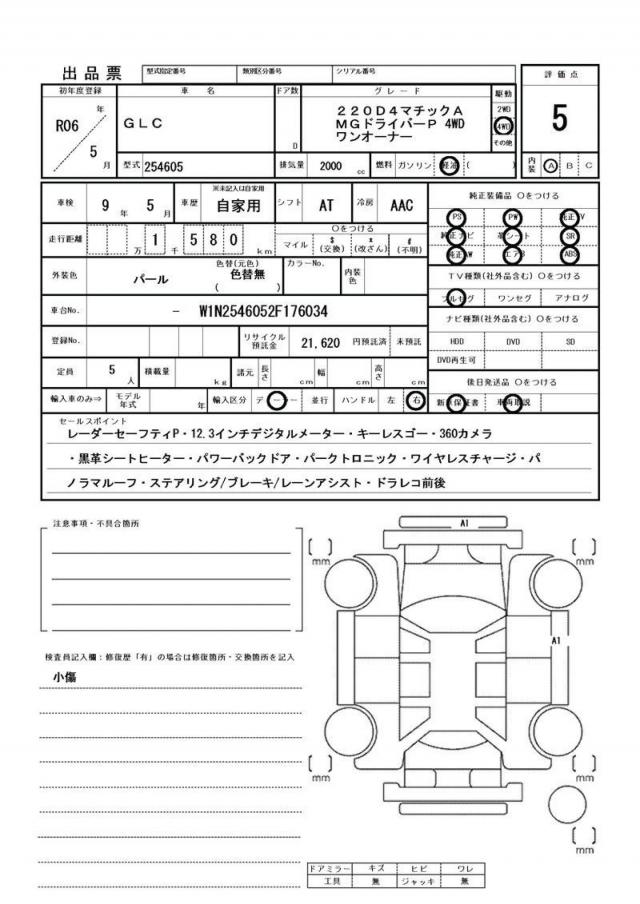 出品票 型式指定番号 類別区分番号 シリアル番号
評価点
5
内装 A B C
初年度登録 車名 ドア数 グレード 駆動
R06 年 5 月
GLC
D
220D4マチックA
MGドライバーP 4WD
ワンオーナー
2WD
4WD
その他
型式 254605 排気量 2000 cc 燃料 ガソリン 軽油 ( )
車検 9 年 5 月 車歴 ※未記入は自家用 自家用 シフト AT 冷房 AAC
走行距離 万 1 千 5 8 0 km 〇をつける
マイル $ (交換) x (改ざん) # (不明)
外装色 パール 色替(元色) 色替無 ( ) カラーNo. 内装色
車台No. － W1N2546052F176034
登録No. リサイクル預託金 21,620 円預託済 未預託
定員 5 人 積載量 kg 諸元 長さ cm 幅 cm 高さ cm
輸入車のみ⇒ モデル年式 年 輸入区分 ディーラー 並行 ハンドル 左 右
純正装備品 〇をつける
PS PW 純正TV
純正ナビ 革シート SR
純正AW エアB ABS
TV種類(社外品含む) 〇をつける
フルセグ ワンセグ アナログ
ナビ種類(社外品含む) 〇をつける
HDD DVD SD
DVD再生可
後日発送品 〇をつける
新車保証書 車両取説
セールスポイント
レーダーセーフティP・12.3インチデジタルメーター・キーレスゴー・360カメラ
・黒革シートヒーター・パワーバックドア・パークトロニック・ワイヤレスチャージ・パ
ノラマルーフ・ステアリング/ブレーキ/レーンアシスト・ドラレコ前後
注意事項・不具合箇所
検査員記入欄：修復歴「有」の場合は修復箇所・交換箇所を記入
小傷
A1
mm mm
A1
mm mm
mm
ドアミラー キズ ヒビ ワレ
工具 無 ジャッキ 無